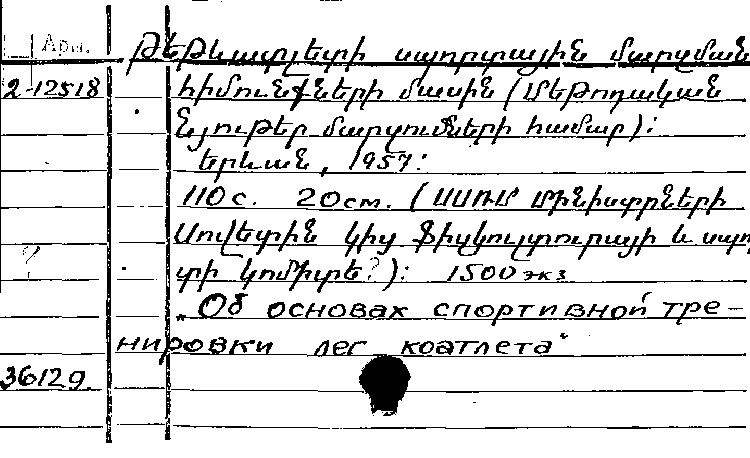 Арм.
Թեթևատլետի սպորտային մարզման
2-12518 հիմունքների մասին (Մեթոդական
նյութեր մարզումների համար):
Երևան, 1957:
110с. 20см. (ՍՍՌՄ Մինիստրների
Սովետին կից Ֆիզկուլտուրայի և սպոր
տի կոմիտե?): 1500 экз
„Об основах спортивной тре-
нировки легкоатлета"
36129.